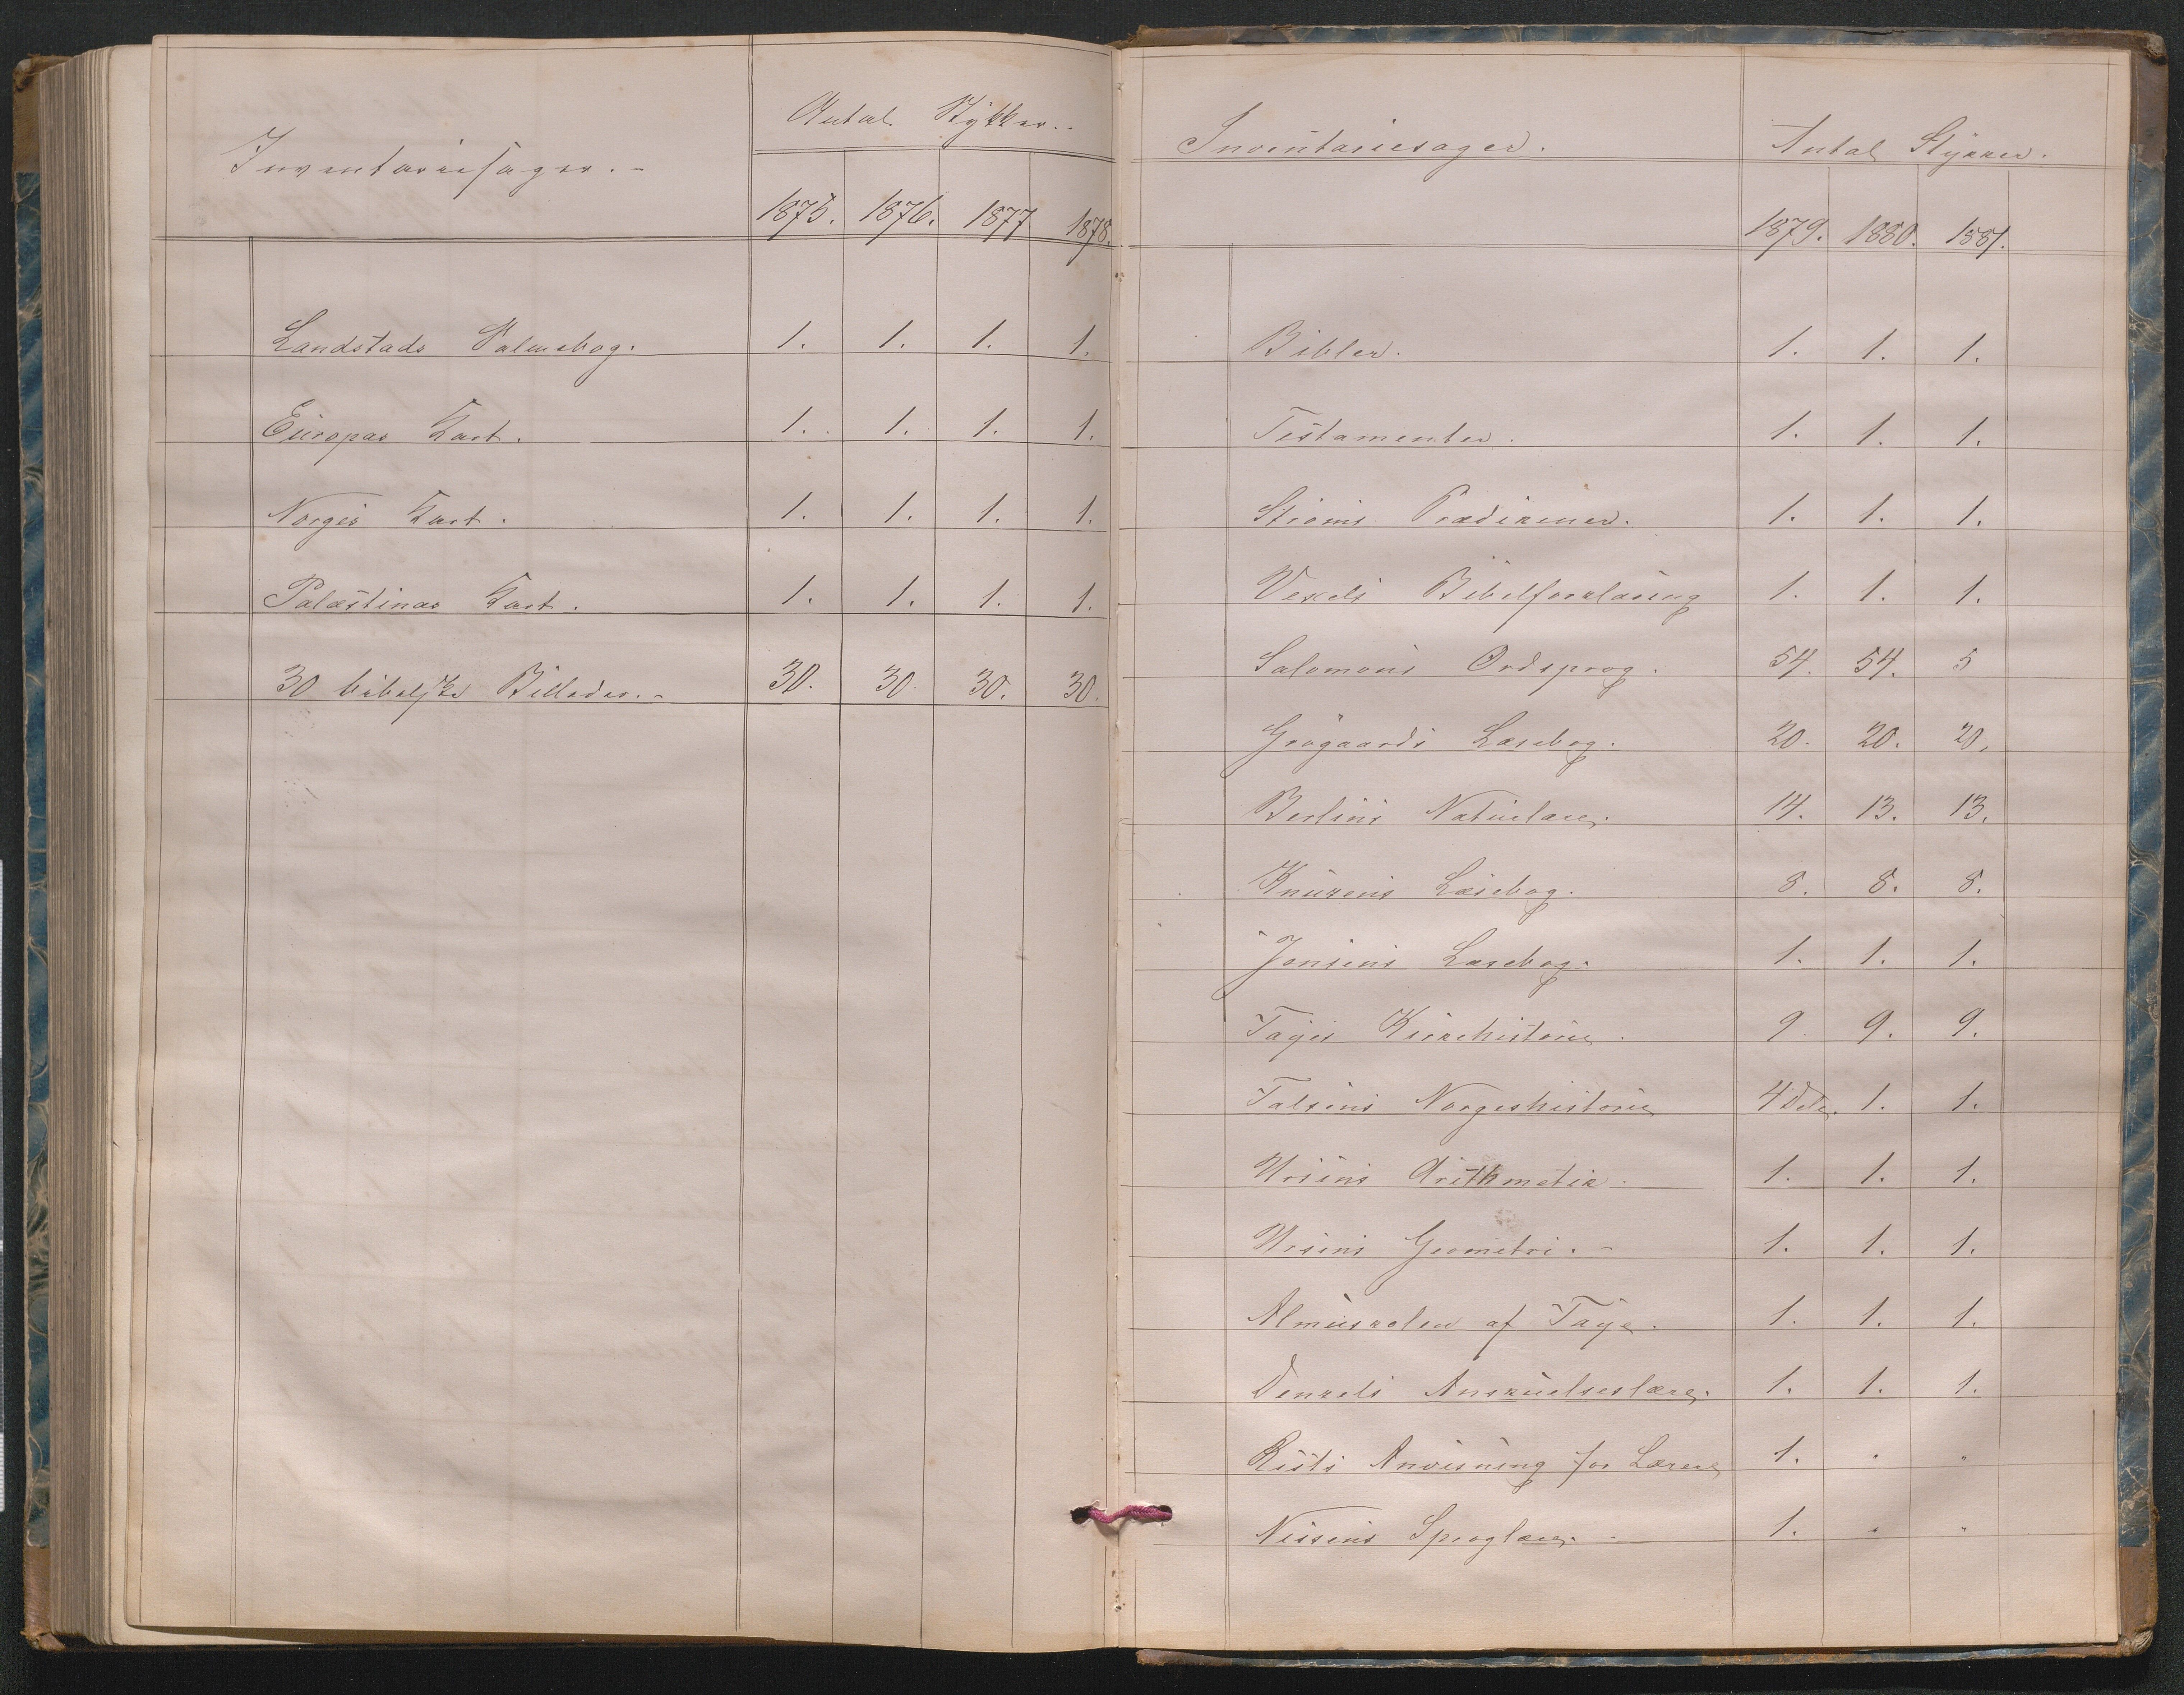 Inventariesager. -
Antal Stykker. -
1875. 1876. 1877 1878.
Landstads Salmebog. 1. 1. 1. 1.
Europas Kart. 1. 1. 1. 1.
Norges Kart. 1. 1. 1. 1.
Palæstinas Kart. 1. 1. 1. 1.
30 bibelske Billeder. - 30. 30. 30. 30.
Inventariesager. Antal Stykker.
1879. 1880. 1881.
Bibler. 1. 1. 1.
Testamenter. 1. 1. 1.
Strøms Prædikener. 1. 1. 1.
Vexels Bibelforklaring 1. 1. 1.
Salomons Ordsprog. 54. 54. 5
Grøgaards Læsebog. 20. 20. 20.
Berlins Naturlære. 14. 13. 13.
Knuzens Læsebog. 8. 8. 8.
Jensens Læsebog. 1. 1. 1.
Fayes Kirkehistorie. 9. 9. 9.
Falsens Norgeshistorie 4 Dele. 1. 1.
Ursins Arithmetik. 1. 1. 1.
Ursins Geometri. - 1. 1. 1.
Almueskolen af Faye. 1. 1. 1.
Denzels Anskuelseslære. 1. 1. 1.
Rists Anvisning for Lærere 1. " "
Nissens Sproglære. - 1. " "